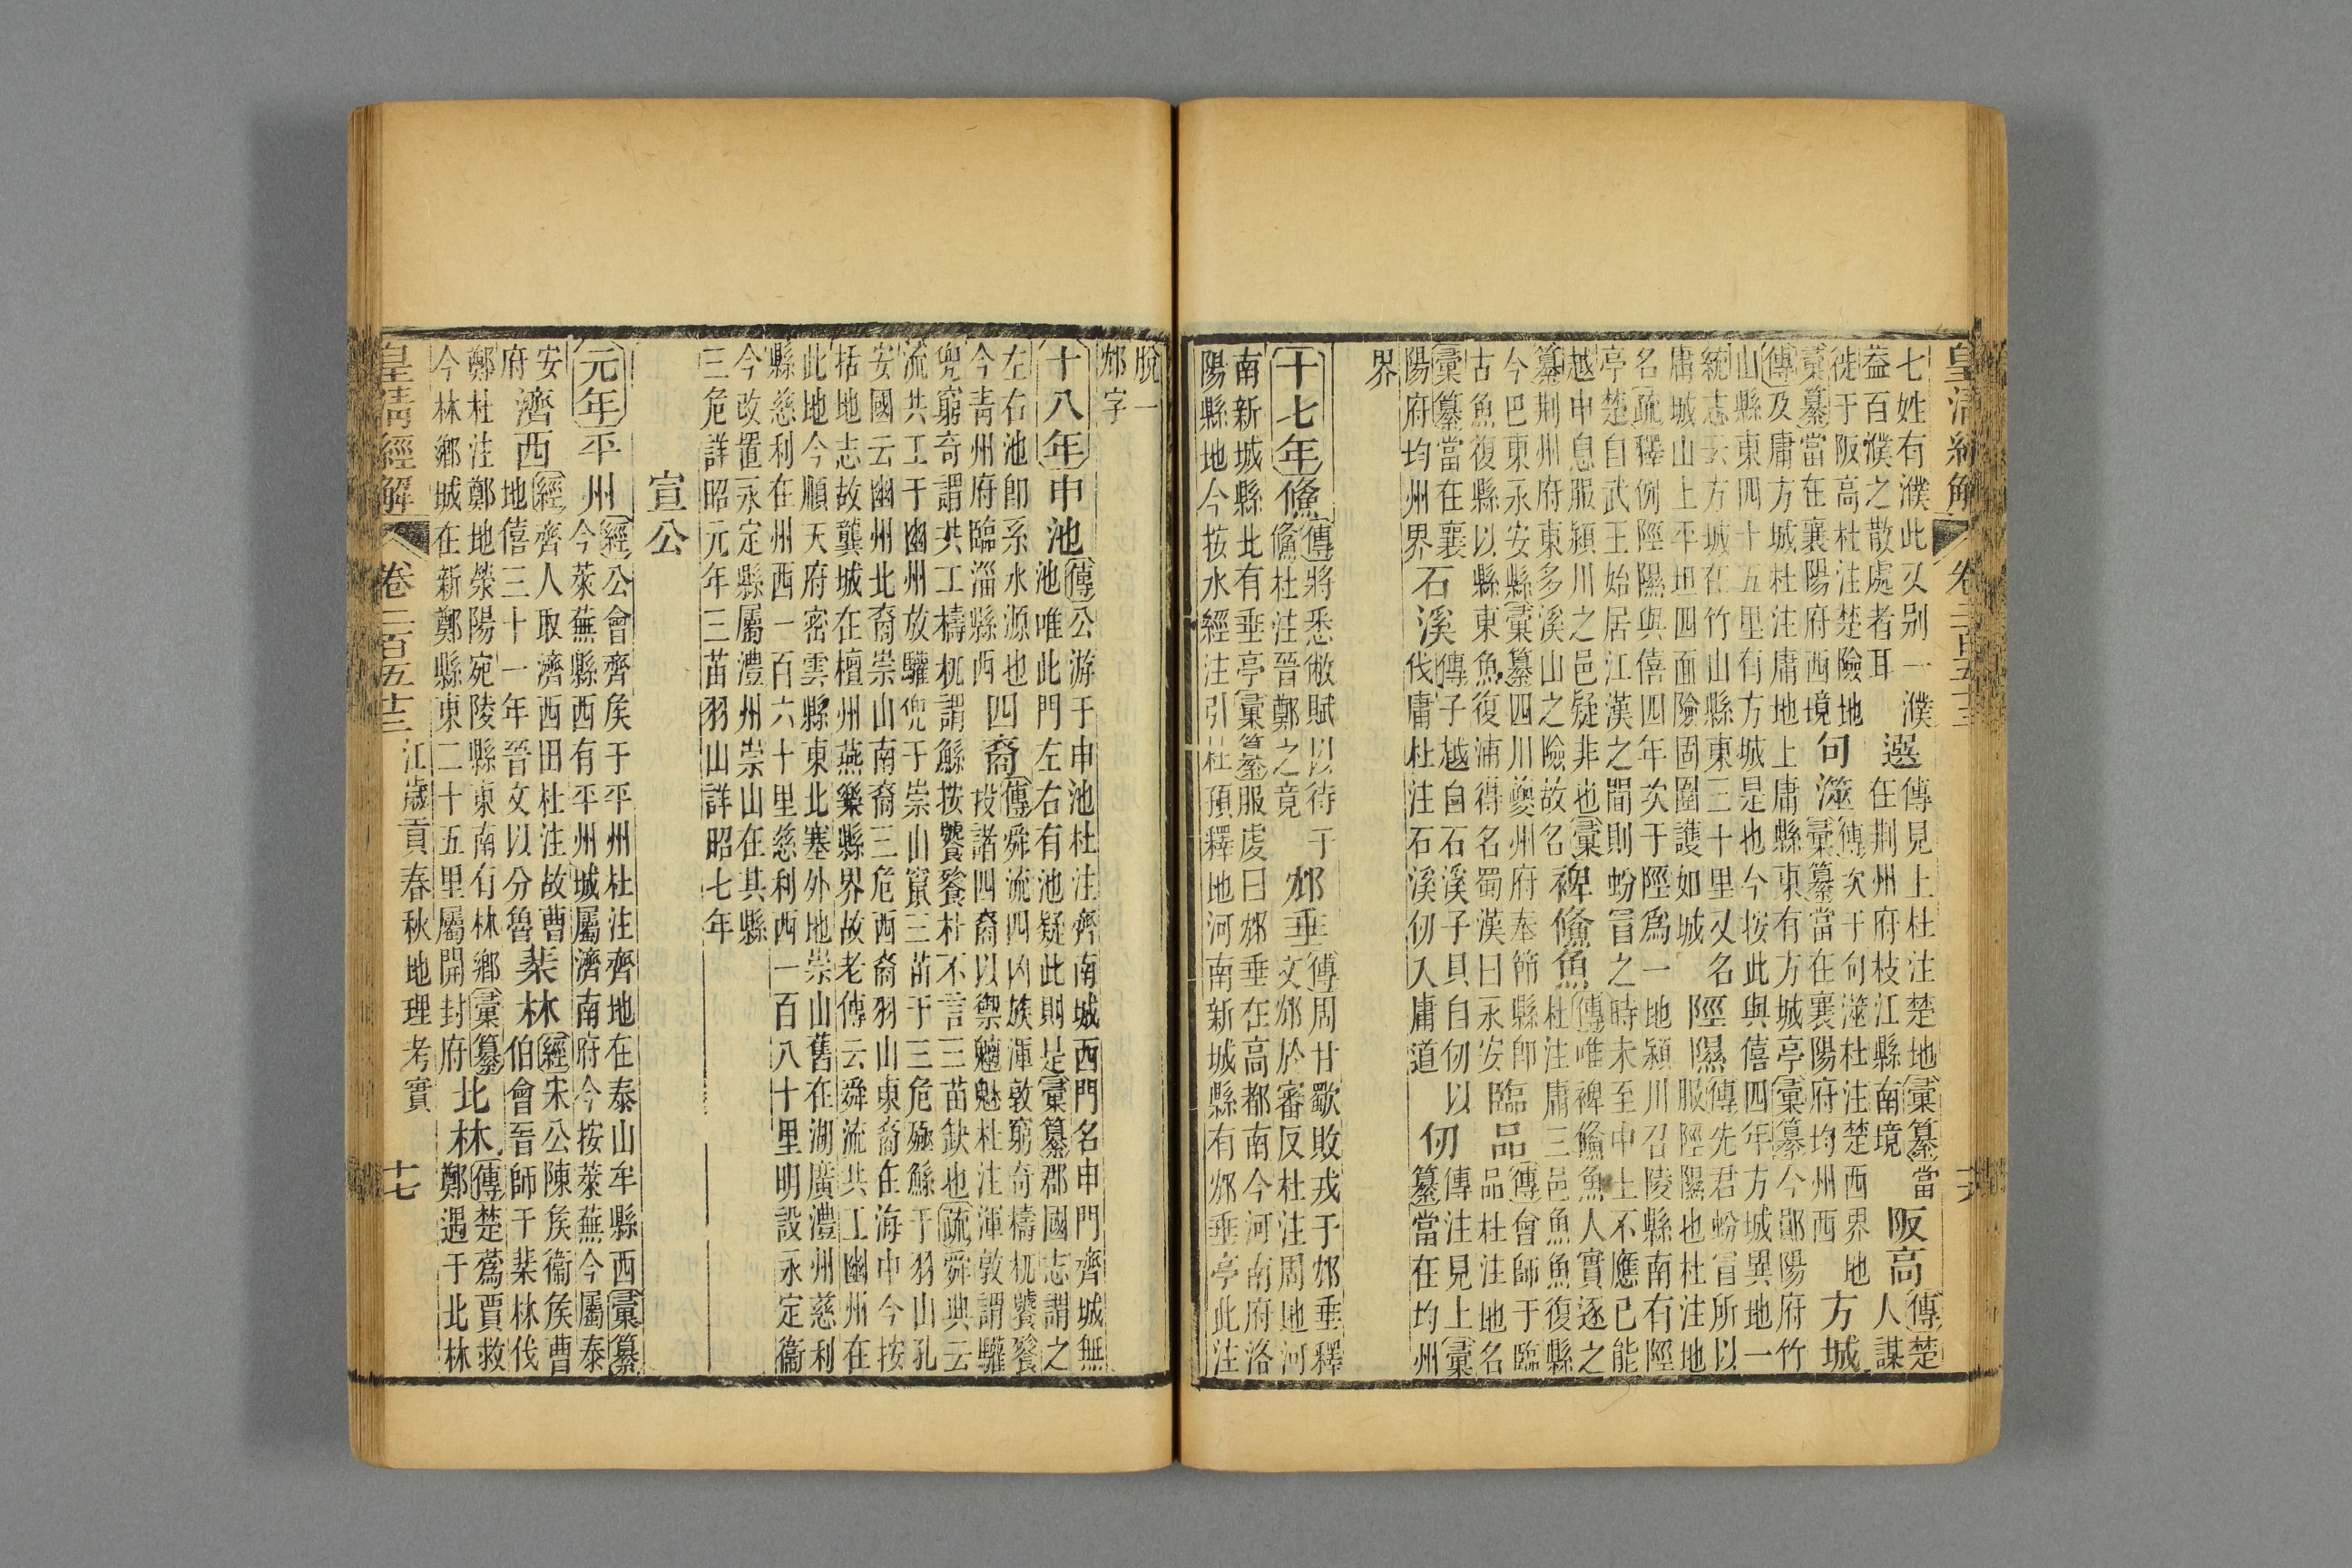 皇清經解 卷二百五十三 十六
七姓有濮此又别一濮
益百濮之散處者耳
選
傳見上杜注楚地彙纂當
在荆州府枝江縣南境
阪高
傳楚
人謀
徙于阪高杜注楚險地
彙纂當在襄陽府西境
句澨
傳次于句澨杜注楚西界地
彙纂當在襄陽府均州西
方城
傳及庸方城杜注庸地上庸縣東有方城亭彙纂今鄖陽府竹
山縣東四十五里有方城是也今按此與僖四年方城異地一
統志云方城在竹山縣東三十里又名
庸城山上平坦四面險固圍護如城
陘隰
傳先君蚡冒所以
服陘隰也杜注地
名疏釋例陘隰與僖四年次于陘爲一地潁川召陵縣南有陘
亭楚自武王始居江漢之間則蚡冒之時未至中土不應已能
越申息服潁川之邑疑非也彙
纂荆州府東多溪山之險故名
裨鯈魚
傳唯裨鯈魚人實逐之
杜注庸三邑魚魚復縣
今巴東永安縣彙纂四川夔州府奉節縣即
古魚復縣以縣東魚復浦得名蜀漢曰永安
臨品
傳會師于臨
品杜注地名
彙纂當在襄
陽府均州界
石溪
傳子越自石溪子貝自仞以
伐庸杜注石溪仞入庸道
仞
傳注見上彙
纂當在均州
界
十七年鯈
傳將悉敝賦以待于
鯈杜注晉鄭之竟
邥垂
傳周甘歜敗戎于邥垂釋
文邥於審反杜注周地河
南新城縣北有垂亭彙纂服虔曰邥垂在高都南今河南府洛
陽縣地今按水經注引杜預釋地河南新城縣有邥垂亭此注
脫一
邥字
十八年申池
傳公游于申池杜注齊南城西門名申門齊城無
池唯此門左右有池疑此則是彙纂郡國志謂之
左右池即系水源也
今青州府臨淄縣西
四裔
傳舜流四凶族渾敦窮奇檮杌饕餮
投諸四裔以禦魑魅杜注渾敦謂驩
兜窮奇謂共工檮杌謂鯀按饕餮杜不言三苗缺也疏舜典云
流共工于幽州放驩兜于崇山竄三苗于三危殛鯀于羽山孔
安國云幽州北裔崇山南裔三危西裔羽山東裔在海中今按
括地志故龔城在檀州燕樂縣界故老傳云舜流共工幽州在
此地今順天府密雲縣東北塞外地崇山舊在湖廣澧州慈利
縣慈利在州西一百六十里慈利西一百八十里明設永定衞
今改置永定縣屬澧州崇山在其縣
三危詳昭元年三苗羽山詳昭七年
宣公
元年平州
經公會齊矦于平州杜注齊地在泰山牟縣西彙纂
今萊蕪縣西有平州城屬濟南府今按萊蕪今屬泰
安
府
濟西
經齊人取濟西田杜注故曹
地僖三十一年晉文以分魯
棐林
經宋公陳矦衞矦曹
伯會晉師于棐林伐
鄭杜注鄭地滎陽宛陵縣東南有林鄉彙纂
今林鄉城在新鄭縣東二十五里屬開封府
北林
傳楚蔿賈救
鄭遇于北林
皇清經解 卷二百五十三 江歲貢春秋地理考實 十七